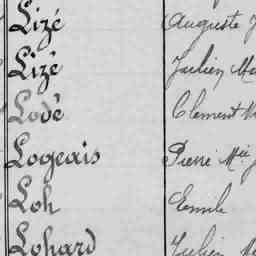 Lizé Auguste J
Lizé Julien Ma
Lodé Clément M
Logeais Pierre Mie J
Loh Emile
Lohard Julien M